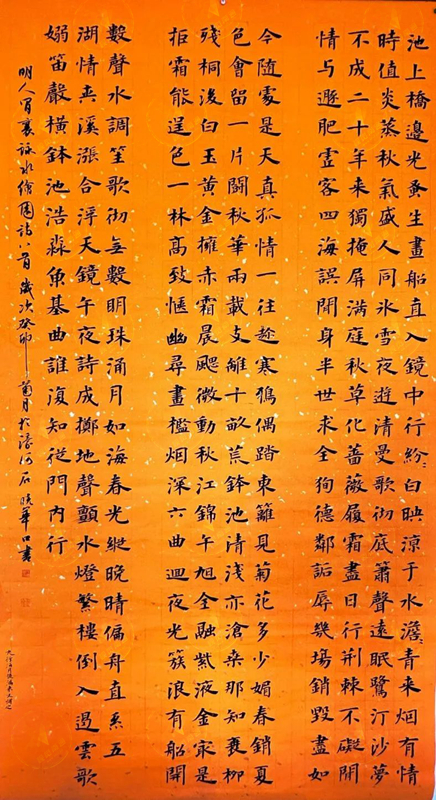 池上橋邊光蚤生畫船直入鏡中行紛:白映涼于水澹:青来烟有情
時值炎蒸秋氣盛人同氷雪夜遊清曼歌彻底簫聲遠眠鷺汀沙夢
不成二十年来獨掩屏满庭秋草化薔薇履霜盡日行荆棘不礙開
情与遯肥雲客四海誤開身半世求全狥德鄰詬辱幾場銷毀盡如
今隨處是天真孤情一往趁寒鴉偶踏東籬見菊花多少媚春銷夏
色會留一片闘秋華兩載支離十畝荒鉢池清淺亦滄桑那知衰柳
殘桐後白玉黄金擁赤霜晨飔微動秋江錦午旭全融紫液金家是
拒霜能逞色一林髙致愜幽尋畫檻烟深六曲迴夜光簇浪有船開
數聲水調笙歌彻無數明珠涌月如海春光縱晚晴偏舟直系五
湖情共溪漲合浮天鏡午夜詩成擲地聲顫水燈繁樓倒入遏雲歌
嫋笛聲橫鉢池浩淼魚基曲誰復知從門内行
明人冒襄詠水繪園詩八首歲次癸卯菊月於濠河石映華書